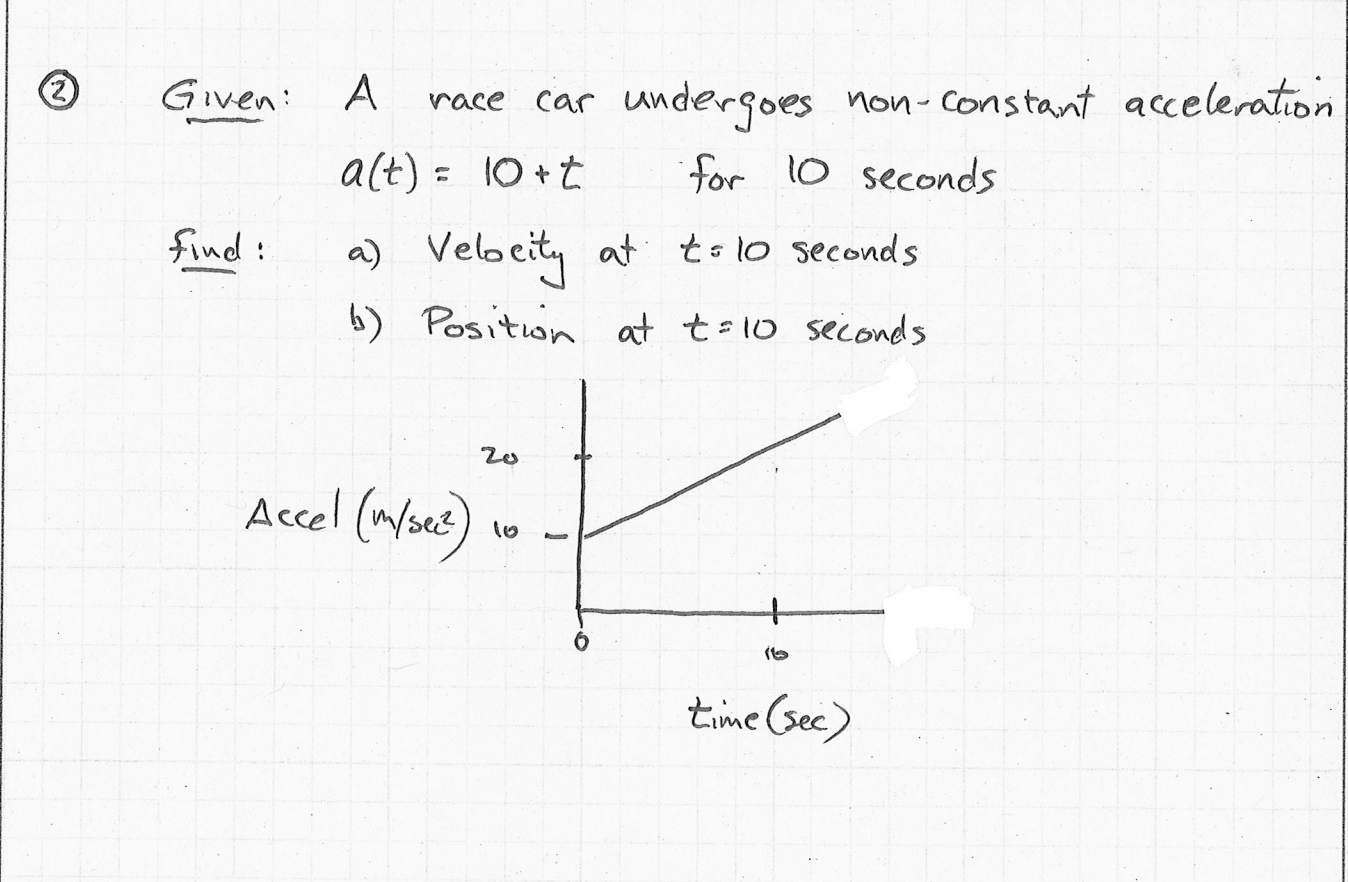 ② Given: A race car undergoes non-constant acceleration
a(t) = 10 + t for 10 seconds
find: a) Velocity at t=10 seconds
b) Position at t=10 seconds
20
Accel (m/sec²) 10
0 10
time (sec)